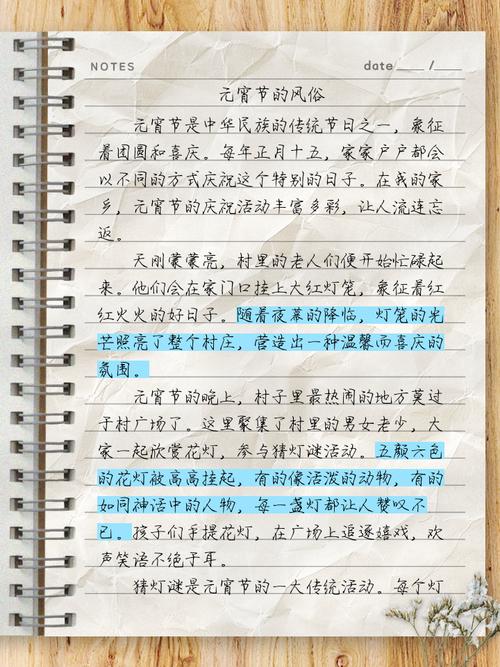 NOTES date____/____
元宵节的风俗
元宵节是中华民族的传统节日之一，象征
着团圆和喜庆。每年正月十五，家家户户都会
以不同的方式庆祝这个特别的日子。在我的家
乡，元宵节的庆祝活动丰富多彩，让人流连忘
返。
天刚蒙蒙亮，村里的老人们便开始忙碌起
来。他们会在家门口挂上大红灯笼，象征着红
红火火的好日子。随着夜幕的降临，灯笼的光
芒照亮了整个村庄，营造出一种温馨而喜庆的
氛围。
元宵节的晚上，村子里最热闹的地方莫过
于村广场了。这里聚集了村里的男女老少，大
家一起欣赏花灯，参与猜灯谜活动。五颜六色
的花灯被高高挂起，有的像活泼的动物，有的
如同神话中的人物，每一盏灯都让人赞叹不
已。孩子们手提花灯，在广场上追逐嬉戏，欢
声笑语不绝于耳。
猜灯谜是元宵节的一大传统活动。每个灯